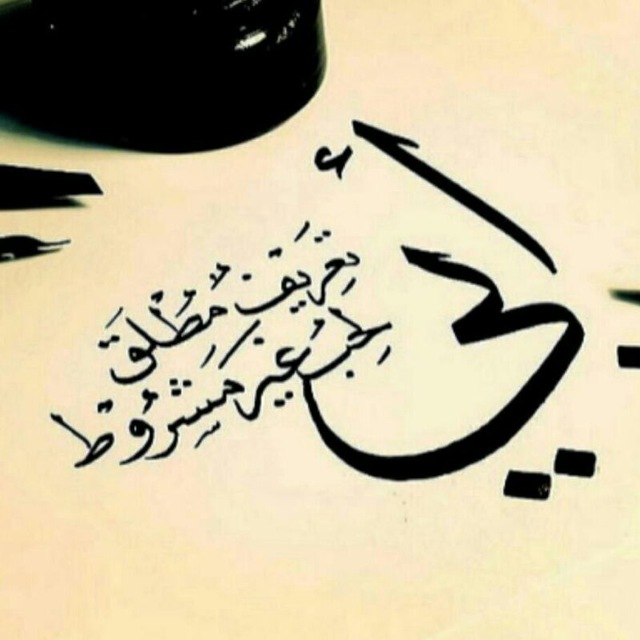 أبي
تعريف مُطْلَق
للحُب غير مَشْرُوط